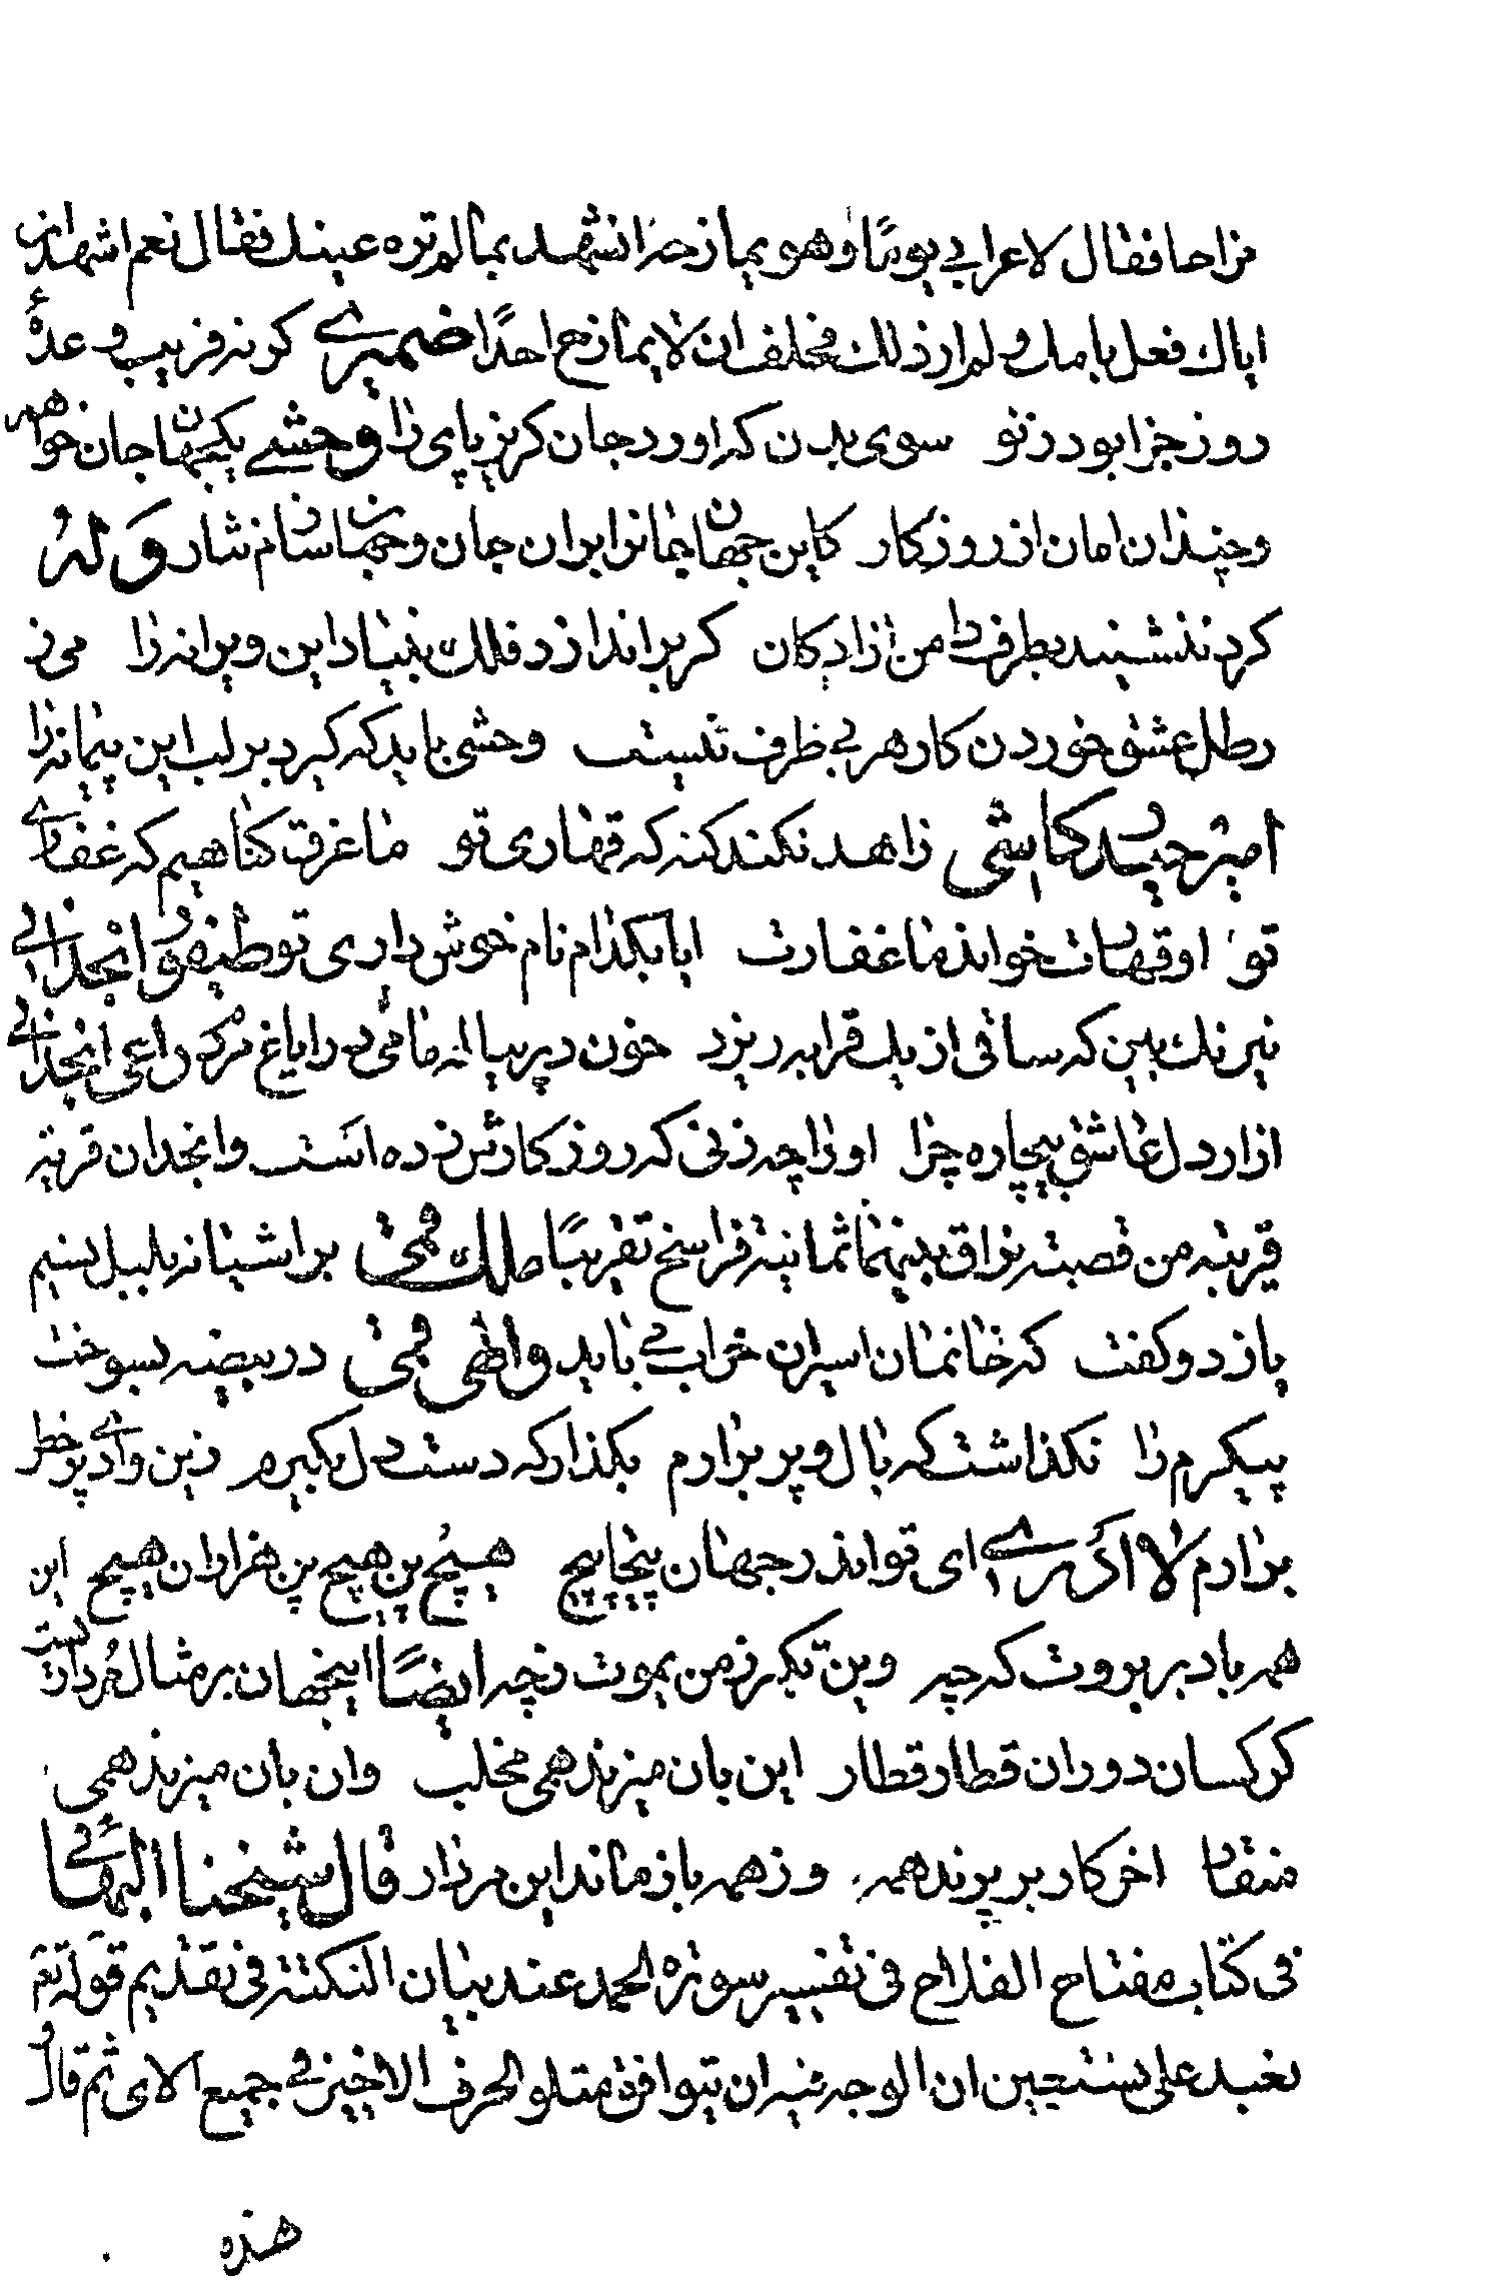 مزاحا فقال لاعرابي يوما وهو يمازحه انشهد بما لم تره عينك فقال نعم اشهد ان
اباك فعل بامك ولم ار ذلك فحلف ان لا يمازح احدا ضميرى كر نه فريب وعدهٔ
روز جزا بود زتو سوى بدن كه اورد جان كريز پاى را وحشى يكجهان جان خواهم
وچندان امان از روزكار كاين جهان جانرا بران جان وجهان سازم نثار وله
كرد ننشيند بطرف دامن ازادكان كر براندازد فلك بنياد اين ويرانه را مى ز
رطل عشق خوردن كار هر بي ظرف نيست وحشى بايد كه كيرد بر لب اين پيمانه را
امير حيدر كاشى زاهد نكند كنه كه قهارى تو ما غرق كناهيم كه غفارى
تو او قهارت خواند ما غفارت ايا بكدام نام خوش دارى تو طيفور انجدانى
نيرنك بين كه ساقى از يك قرابه ريزد خون در پياله ما مى در اياغ مردم راعى انجدانى
ازار دل عاشق بيچاره چرا او را چه زنى كه روزكارش زده است وانجدان قرية
قريبة من قصبة نراق بينهما ثمانية فراسخ تقريبا ملك قمى بر اشيانه بلبل نسيم
پا زد وكفت كه خانمان اسيران خراب مى بايد والهى قمى در بيضه بسوخت
پيكرم را نكذاشت كه بال وپر برارم بكذار كه دست دل بكيرم زين وادى پر خطر
برارم لا ادرى اى تو اندر جهان پيچاپيچ هيچ بن هيچ بن هزاران هيچ اين
همه باد بر بروت كه چه وين تكبر ز من يموت نچه ايضا اينجهان بر مثال مرداريست
كركسان دوران قطار قطار اين بان ميزند همى مخلب وان بان ميزند همى
منقار اخر كار بر پرند همه وز همه باز ماند اين مردار قال شيخنا البهائي
فى كتاب مفتاح الفلاح فى تفسير سورة الحمد عند بيان النكتة فى تقديم قوله تع
نعبد على نستعين ان الوجه فيه ان يتوافق متلو الحرف الاخير في جميع الاى ثم قال
هذه